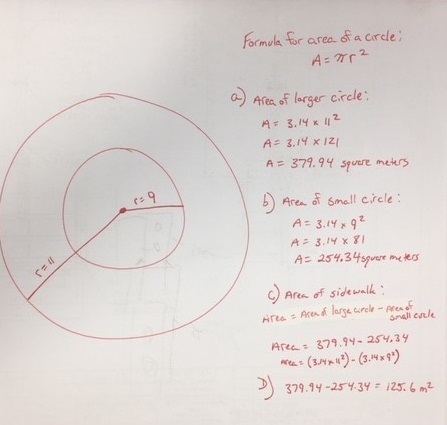 Formula for area of a circle:
A = πr²
a) Area of larger circle:
A = 3.14 x 11²
A = 3.14 x 121
A = 379.94 square meters
r = 9
r = 11
b) Area of small circle:
A = 3.14 x 9²
A = 3.14 x 81
A = 254.34 square meters
c) Area of sidewalk:
Area = Area of large circle - Area of
small circle
Area = 379.94 - 254.34
Area = (3.14x11²) - (3.14x9²)
D) 379.94 - 254.34 = 125.6 m²